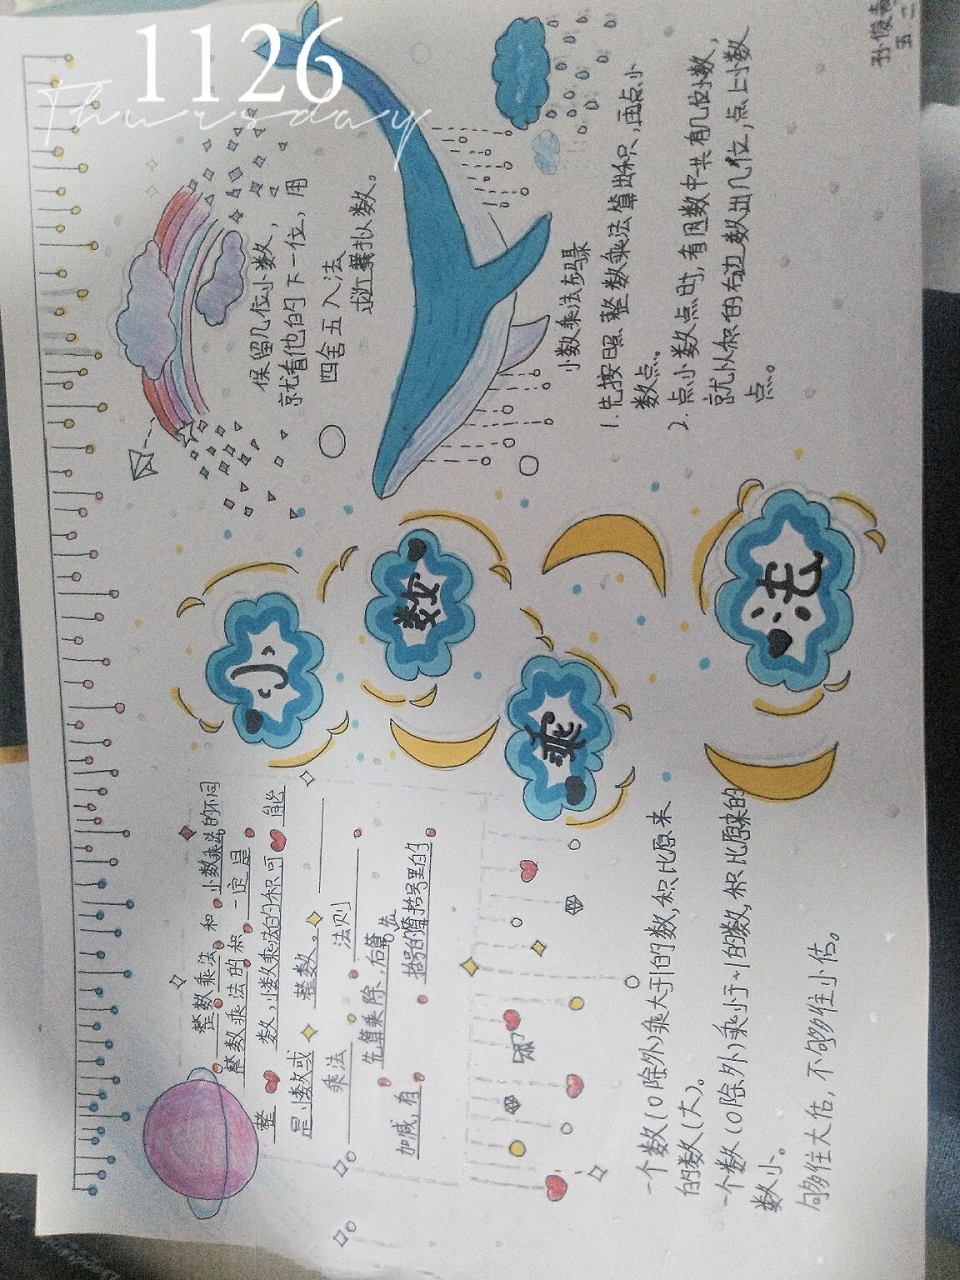 1126
Thursday
小数乘法
整数乘法和小数乘法的不同
整数乘法的积一定是
整数,小数乘法的积可能
是小数或整数。
乘法法则
先算乘除,后算
加减,有括号的先算括号里的
一个数(0除外)乘大于1的数,积比原来
的数(大)。
一个数(0除外)乘小于1的数,积比原来的
数小。
够住大估,不够住小估。
保留几位小数,
就看他的下一位,用
四舍五入法
求近似数。
小数乘法步骤
1.先按照整数乘法算出积,再点小
数点。
2.点小数点时,看因数中共有几位小数,
就从积的右边数出几位,点上小数
点。